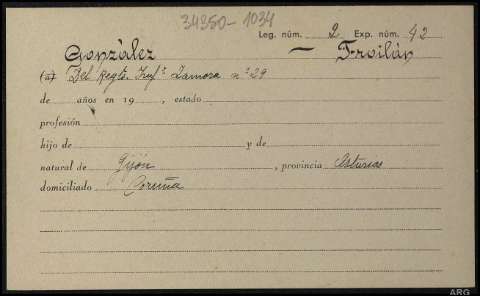 34350-1034
Leg. núm. 2 Exp. núm. 42
González — Froilán
(a) Del Regto. Inf.ª Zamora n.º 29
de años en 19 , estado
profesión
hijo de y de
natural de Gijón , provincia Asturias
domiciliado Coruña
ARG